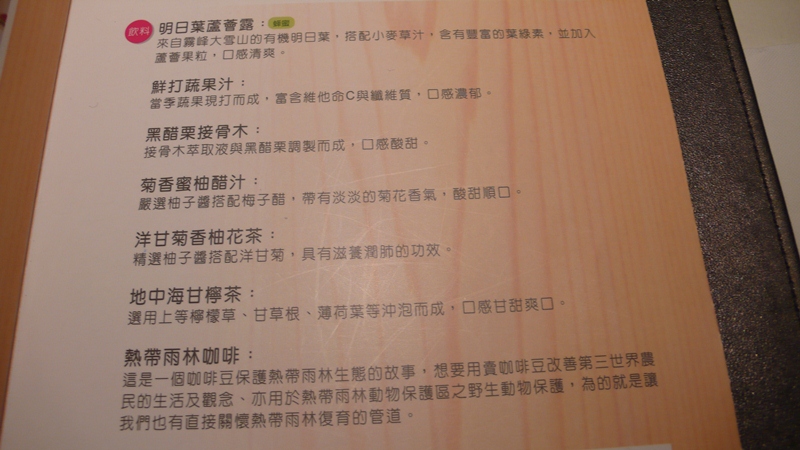 飲料
明日葉蘆薈露： 蜂蜜
來自霧峰大雪山的有機明日葉，搭配小麥草汁，含有豐富的葉綠素，並加入
蘆薈果粒，口感清爽。
鮮打蔬果汁：
當季蔬果現打而成，富含維他命C與纖維質，口感濃郁。
黑醋栗接骨木：
接骨木萃取液與黑醋栗調製而成，口感酸甜。
菊香蜜柚醋汁：
嚴選柚子醬搭配梅子醋，帶有淡淡的菊花香氣，酸甜順口。
洋甘菊香柚花茶：
精選柚子醬搭配洋甘菊，具有滋養潤肺的功效。
地中海甘檸茶：
選用上等檸檬草、甘草根、薄荷葉等沖泡而成，口感甘甜爽口。
熱帶雨林咖啡：
這是一個咖啡豆保護熱帶雨林生態的故事，想要用賣咖啡豆改善第三世界農
民的生活及觀念、亦用於熱帶雨林動物保護區之野生動物保護，為的就是讓
我們也有直接關懷熱帶雨林復育的管道。